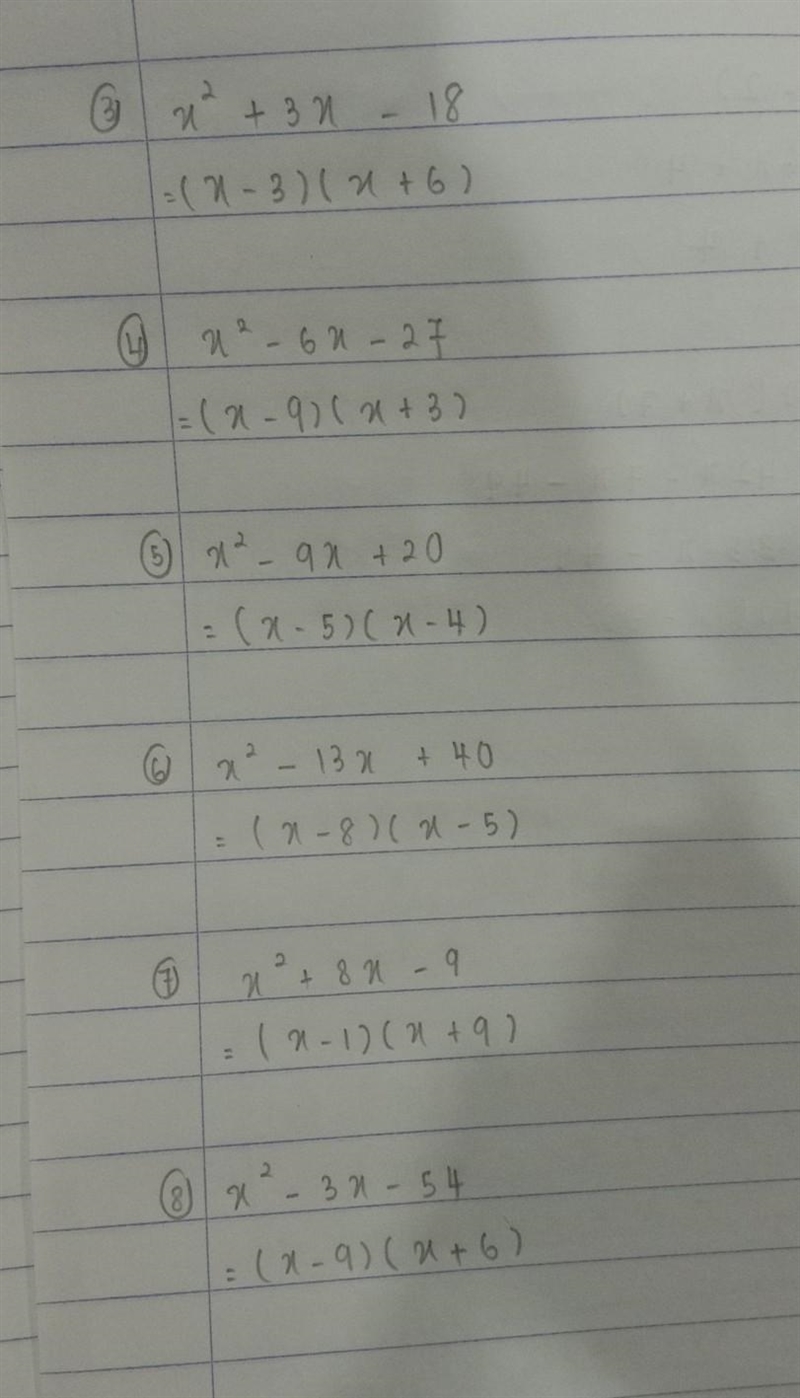 ③ x² + 3x - 18
= (x - 3)(x + 6)
④ x² - 6x - 27
= (x - 9)(x + 3)
⑤ x² - 9x + 20
= (x - 5)(x - 4)
⑥ x² - 13x + 40
= (x - 8)(x - 5)
⑦ x² + 8x - 9
= (x - 1)(x + 9)
⑧ x² - 3x - 54
= (x - 9)(x + 6)